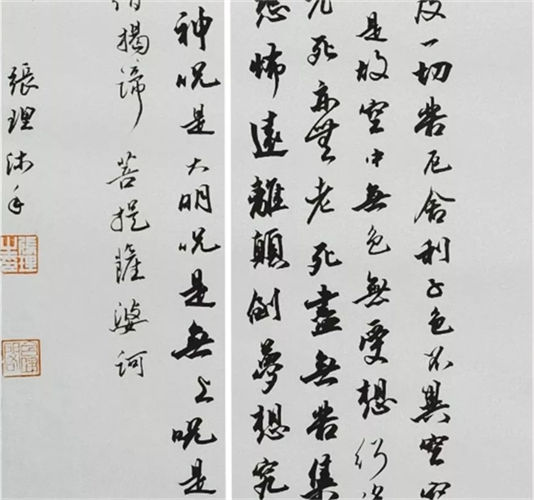 度一切苦厄舍利子色不異空空
是故空中無色無受想行
老死亦無老死盡無苦集
恐怖遠離顛倒夢想究
神呪是大明呪是無上呪是
揭諦菩提薩婆訶
張理沐手